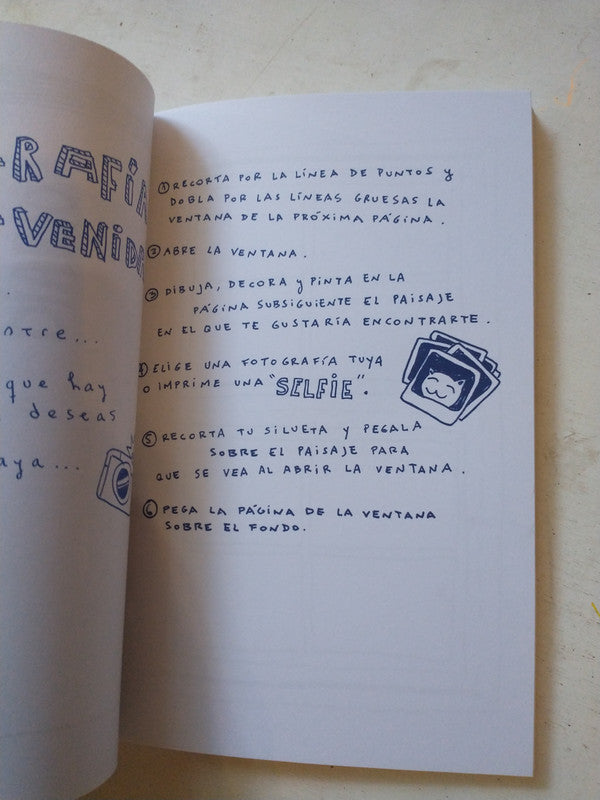 que hay
deseas
① RECORTA POR LA LÍNEA DE PUNTOS y
DOBLA POR LAS LÍNEAS GRUESAS LA
VENTANA DE LA PRÓXIMA PÁGINA.
② ABRE LA VENTANA.
③ DIBUJA, DECORA y PINTA EN LA
PÁGINA SUBSIGUIENTE EL PAISAJE
EN EL QUE TE GUSTARÍA ENCONTRARTE.
④ ELIGE UNA FOTOGRAFÍA TUYA
O IMPRIME UNA "SELFIE".
⑤ RECORTA TU SILUETA y PEGALA
SOBRE EL PAISAJE PARA
QUE SE VEA AL ABRIR LA VENTANA.
⑥ PEGA LA PÁGINA DE LA VENTANA
SOBRE EL FONDO.